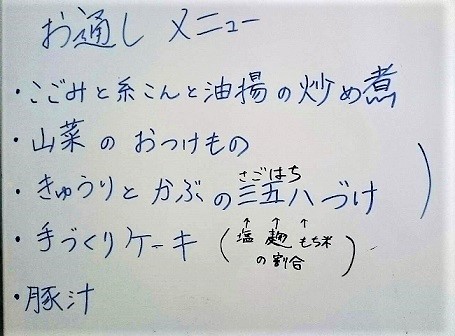 お通し メニュー
・こごみと糸こんと油揚の炒め煮
・山菜のおつけもの
さごはち
・きゅうりとかぶの三五八づけ
・手づくりケーキ
(塩 麹 もち米
の割合)
・豚汁